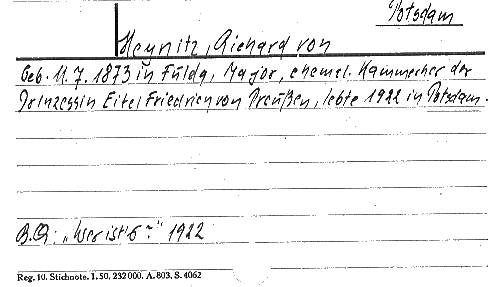 Potsdam
Heynitz, Richard von
Geb. 11.7.1873 in Fulda, Major, ehemal. Kammerher der
Prinzessin Eitel Friedrich von Preußen, lebte 1922 in Potsdam.
B.Q: „Wer ist's?" 1922
Reg. 10. Stichnote. 1. 50, 232 000. A. 803. S. 4062